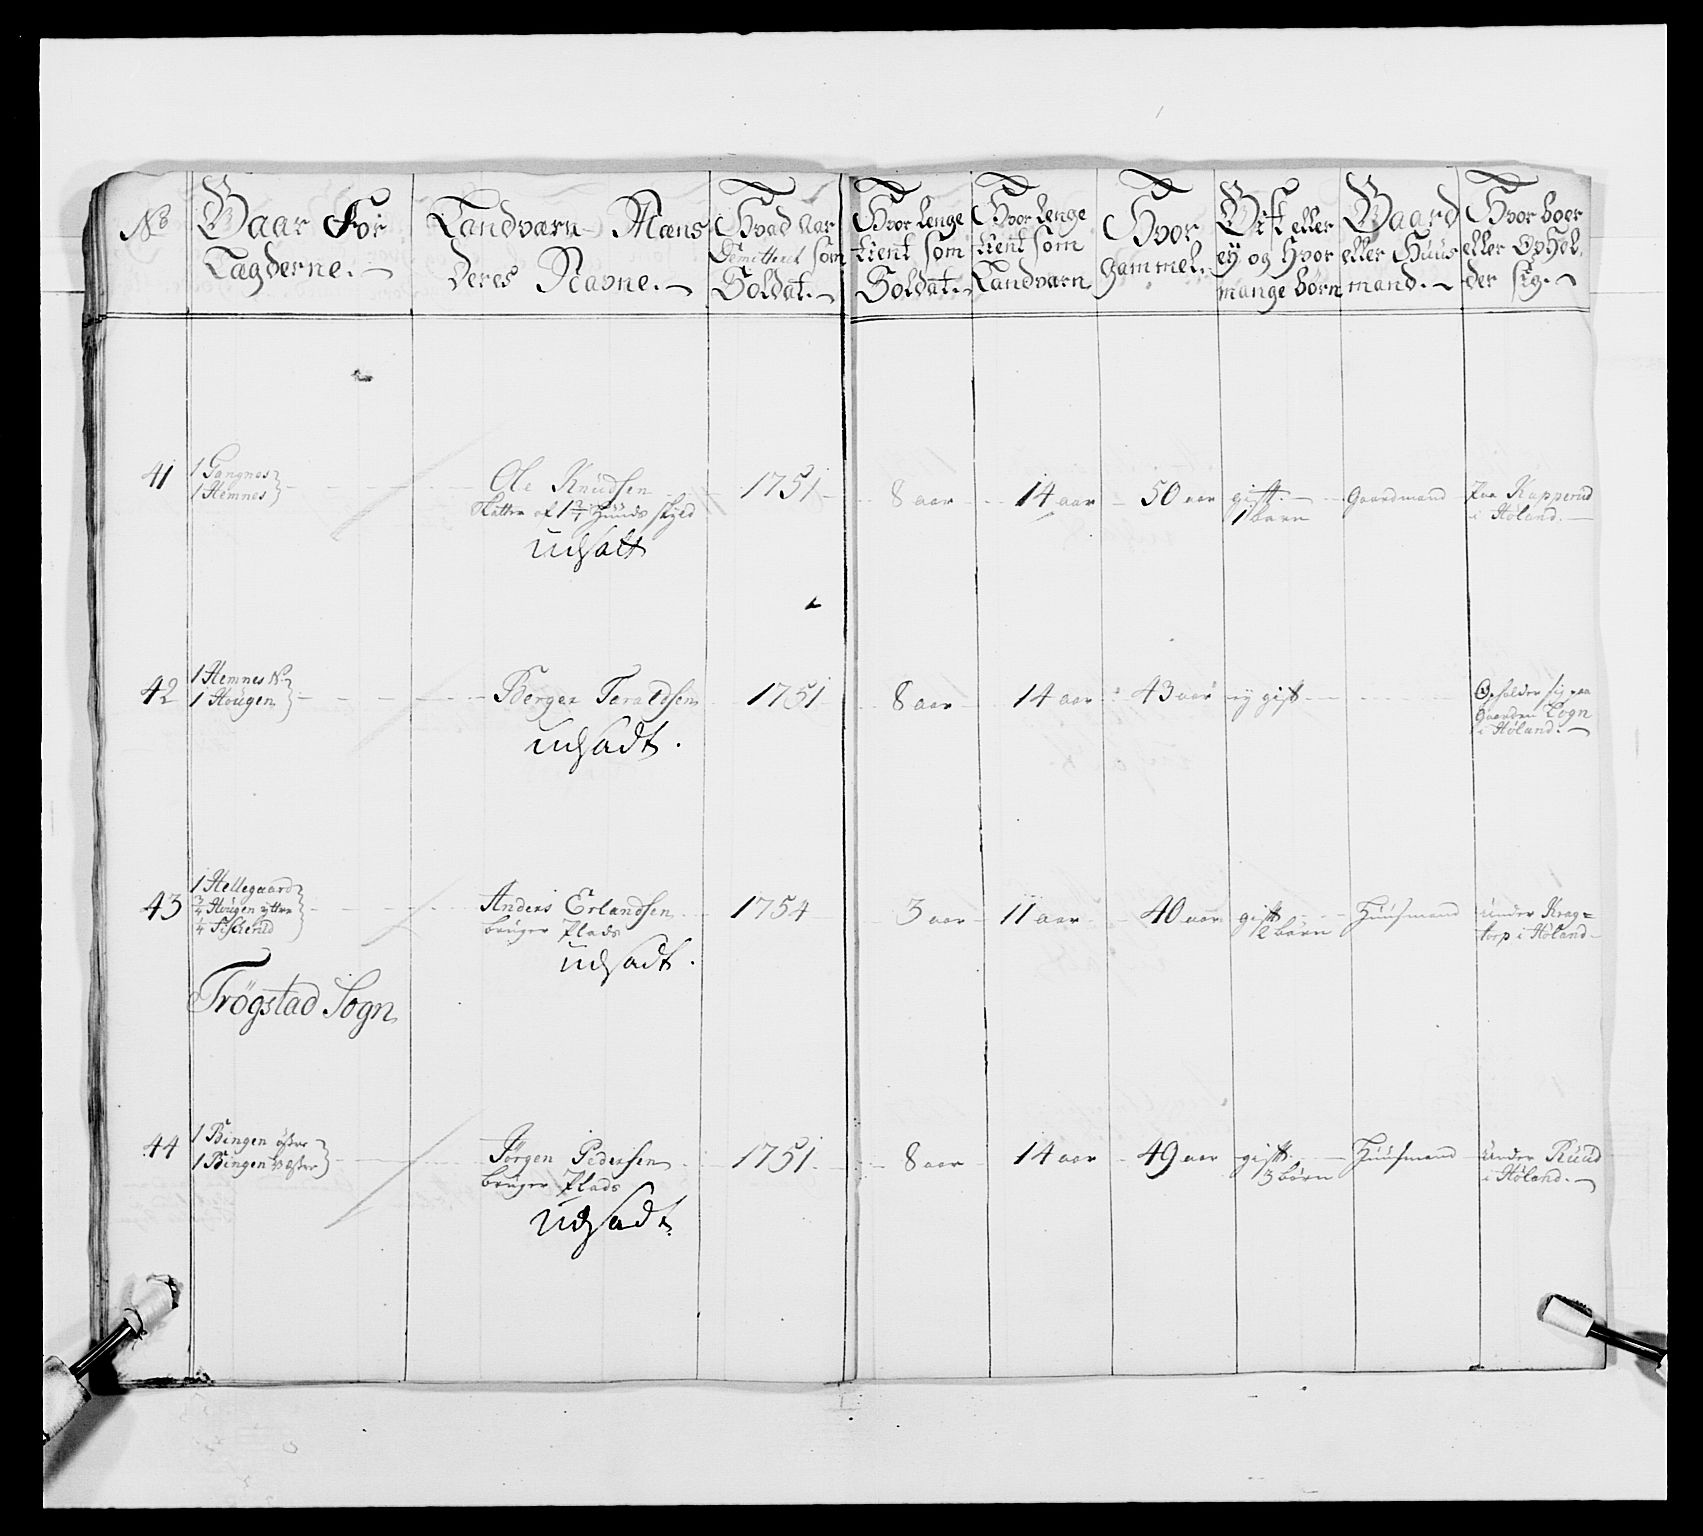 No
Gaar For
Lagderne.
Landværn Mæns
deres Navne.
Hvad Aar
Demitteret som
Soldat.
Hvor lenge
tient som
Soldat.
Hvor lenge
tient som
Landværn
Hvor
gammel.
Gift eller
ey og Hvor
mange børn
Gaard
eller Huus
mand.
Hvor boer
eller Ophol
der sig.
41
1 Gangnes
1 Hemnes
Ole Knudsen
Skatter af 1 3/4 Hunds skyld
udsatt
1751
8 aar
14 aar
50 aar
gift
1 barn
Gaardmand
Paa Kapperud
i Høland.
42
1 Hemnes N.
1 Hougen
Berger Taraldsen
udsadt.
1751
8 aar
14 aar
43 aar
ey gift
Opholder sig paa
Gaarden Logn
i Høland.
43
1 Hellegaard
3/4 Hougen yttre
1/4
Anders Erlandsen
bruger Plads
udsadt.
1754
3 aar
11 aar
40 aar
gift
2 børn
Huusmand
under Krag=
torp i Høland
Trøgstad Sogn
44
1 Bingen østre
1 Bingen Vestre
Jørgen Pedersen
bruger Plads
udsadt.
1751
8 aar
14 aar
49 aar
gift
3 børn
Huusmand
under Ruud
i Høland.